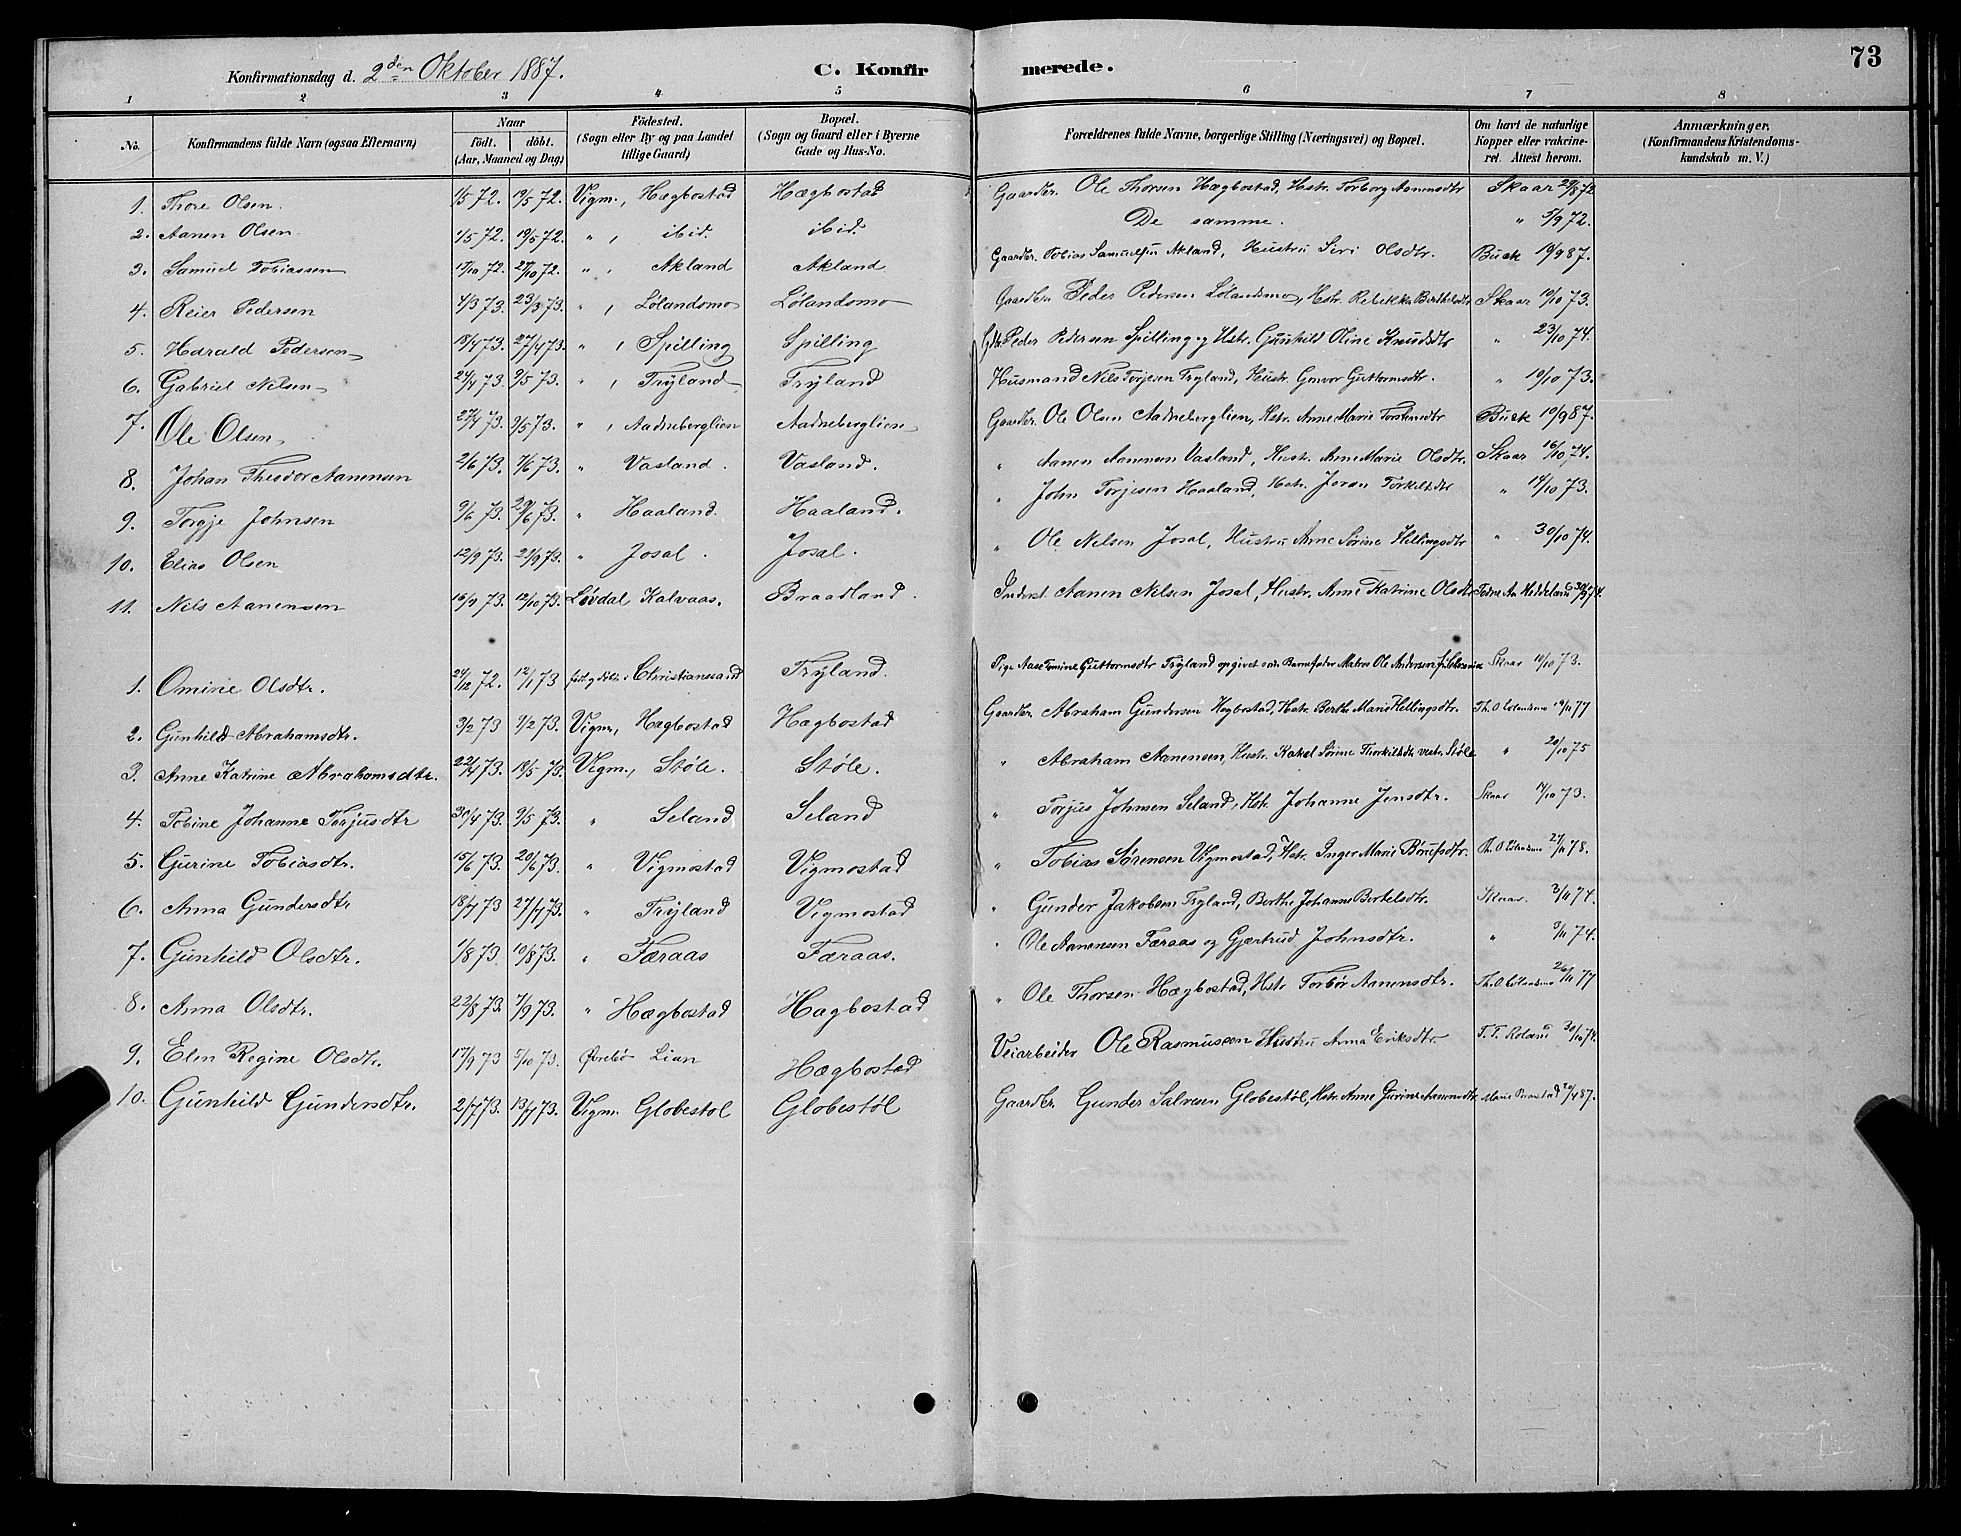 73
Konfirmationsdag d. 2den Oktober 1887. C. Konfir merede.
1 2 3 4 5 6 7 8
No. Konfirmandens fulde Navn (ogsaa Efternavn) Naar födt. döbt. (Aar, Maaned og Dag) Födested. (Sogn eller By og paa Landet tillige Gaard) Bopæl. (Sogn og Gaard eller i Byerne Gade og Hus-No. Forældrenes fulde Navne, borgerlige Stilling (Næringsvei) og Bopæl. Om havt de naturlige Kopper eller vakcineret. Attest herom. Anmærkninger. (Konfirmandens Kristendomskundskab m. V.)
1. Thore Olsen. 1/5 72. 19/5 72. Vigm., Hægbostad Hægbostad Gaardbr. Ole Thorsen Hægbostad, Hstr. Torborg Aanensdtr Skaar 29/8 72
2. Aanen Olsen 1/5 72. 19/5 72. " , ibid. ibid. De samme. " 5/9 72.
3. Samuel Tobiassen 17/10 72. 27/10 72. " , Akland Akland Gaardbr. Tobias Samuelsen Akland, Hustru Siri Olsdtr. Buck 19/9 87.
4. Reier Pedersen 4/3 73. 23/3 73. " , Lølandsmo Lølandsmo Gaardbr. Peder Pedersen Lølandsmo, Hstr. Rebekka Berthelsdtr Skaar 10/10 73.
5. Harald Pedersen 18/4 73. 27/4 73. " , Spilling Spilling Gdbr. Peder Pedersen Spilling og Hstr. Gunhild Oline Knudsdtr " 23/10 74.
6. Gabriel Nilsen 24/4 73. 9/5 73. " , Trÿland Trÿland Husmand Nils Torjesen Tryland, Hustr. Gunvor Guttormsdtr. " 10/10 73.
7. Ole Olsen 27/4 73. 9/5 73. " , Aadneberglien Aadneberglien Gaardbr. Ole Olsen Aadneberglien, Hstr. Anne Marie Torstensdtr Buck 19/9 87.
8. Johan Theodor Aanensen 2/6 73. 7/6 73. " Vasland. Vasland. " Aanen Aanensen Vasland, Hustr. Anne Marie Olsdtr. Skaar 16/10 74.
9. Torgje Johnsen 9/6 73. 29/6 73. " Haaland. Haaland. " John Torjesen Haaland, Hstr. Joran Torkildsdtr " 14/10 73.
10. Elias Olsen 12/9 73. 21/9 73. " Josal. Josal. " Ole Nilsen Josal, Hustru Anne Sørine Hellingsdtr " 30/10 74.
11. Nils Aanensen 16/9 73. 12/10 73. Løvdal Kalvaas. Braadland. Inderst Aanen Nilsen Josal, Hustr. Anne Katrine Olsdtr Heddeland 30/9 74.
1. Omine Olsdtr. 24/12 72. 12/1 73 født og døbt i Christianssand Trÿland. Pige Aase Tomine Guttormsdtr Tryland opgivet som Barnefader Matros Ole Andersen Skaar 10/10 73.
2. Gunhild Abrahamsdtr. 3/2 73 9/2 73. Vigm., Hægbostad Hægbostad Gaardbr. Abraham Gundersen Hægbostad, Hstr. Berthe Marie Hellingsdtr. Th. O. Lølandsmo 19/11 77
3. Anne Katrine Abrahamsdtr. 22/4 73. 18/5 73. Vigm., Støle. Støle. " Abraham Aanensen, Hustr. Rakel Sørine Thorkildsdtr vestr. Støle " 20/10 75
4. Tobine Johanne Torjusdtr 30/4 73. 9/5 73. " Seland Seland " Torjus Johnsen Seland, Hstr. Johanne Jensdtr. Skaar 14/10 73.
5. Gurine Tobiasdtr. 15/6 73. 20/6 73. " Vigmostad Vigmostad " Tobias Sørensen Vigmostad, Hstr. Inger Marie Børufsdtr. Th. O. Lølandsmo 27/11 78.
6. Anna Gundersdtr 18/7 73 27/7 73. " Trÿland Vigmostad " Gunder Jakobsen Tryland, Berthe Johanne Bertelsdtr. Skaar. 3/11 74.
7. Gunhild Olsdtr. 1/8 73. 10/8 73. " Færaas Færaas. " Ole Aanensen Færaas og Gjertrud Johnsdtr. " 9/11 74.
8. Anna Olsdtr. 22/8 73. 7/9 73. " Hægbostad Hægbostad " Ole Thorsen Hægbostad, Hstr. Torbør Aanensdtr. Th. O. Lølandsmo 26/11 77
9. Elen Regine Olsdtr. 17/9 73 5/10 73. Øvrebø Lian Hægbostad Veiarbeider Ole Rasmussen Hustru Anna Eriksdtr. T. T. Roland 30/10 74.
10. Gunhild Gundersdtr. 2/7 73. 13/7 73. Vigm. Globestøl Globestøl Gaardbr. Gunder Salvesen Globestøl, Hstr. Anne Gurine Aanensdtr. Marie 20/4 87.